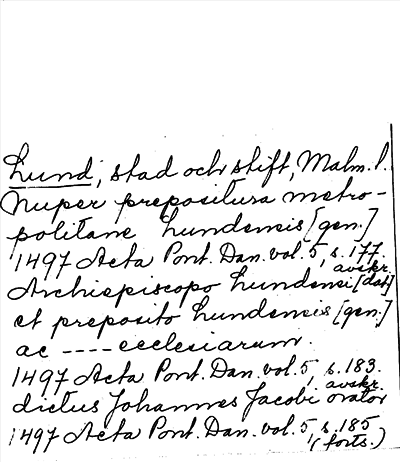 Lund, stad och stift, Malm. l.
Nuper prepositura metro-
politane Lundensis [gen.]
1497 Acta Pont. Dan. vol. 5, s. 177.
avskr.
Archiepiscopo Lundensi [dat]
et preposito Lundensis [gen.]
ac ---- ecclesiarum.
1497 Acta Pont. Dan. vol. 5, s. 183.
avskr.
dictus Johannes Jacobi orator
1497 Acta Pont. Dan. vol. 5, s. 185
(forts.)